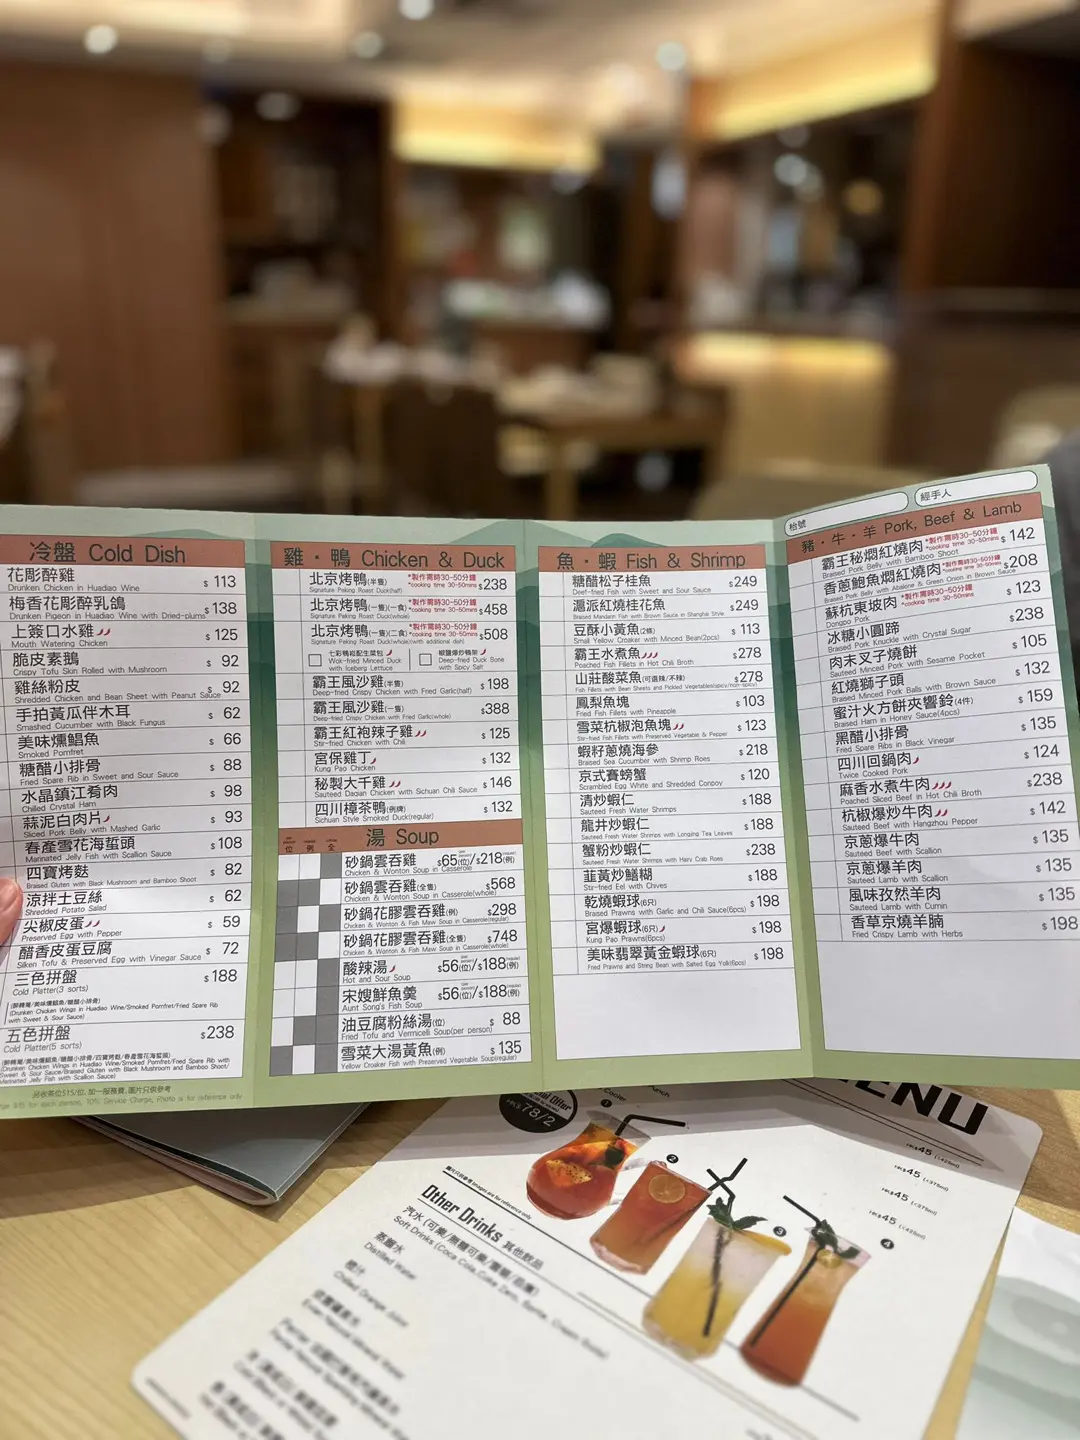 冷盤 Cold Dish
花彫醉雞 $ 113
Drunken Chicken in Huadiao Wine
梅香花彫醉乳鴿 $ 138
Drunken Pigeon in Huadiao Wine with Dried-plums
上簽口水雞 $ 125
Mouth Watering Chicken
脆皮素鵝 $ 92
Crispy Tofu Skin Rolled with Mushroom
雞絲粉皮 $ 92
Shredded Chicken and Bean Sheet with Peanut Sauce
手拍黃瓜伴木耳 $ 62
Smashed Cucumber with Black Fungus
美味燻鯧魚 $ 66
Smoked Pomfret
糖醋小排骨 $ 88
Fried Spare Rib in Sweet and Sour Sauce
水晶鎮江肴肉 $ 98
Chilled Crystal Ham
蒜泥白肉片 $ 93
Sliced Pork Belly with Mashed Garlic
春產雪花海蜇頭 $ 108
Marinated Jelly Fish with Scallion Sauce
四寶烤麩 $ 82
Braised Gluten with Black Mushroom and Bamboo Shoot
涼拌土豆絲 $ 62
Shredded Potato Salad
尖椒皮蛋 $ 59
Preserved Egg with Pepper
醋香皮蛋豆腐 $ 72
Silken Tofu & Preserved Egg with Vinegar Sauce
三色拼盤 $ 188
Cold Platter(3 sorts)
(Drunken Chicken Wings in Huadiao Wine/Smoked Pomfret/Fried Spare Rib
with Sweet & Sour Sauce)
五色拼盤 $238
Cold Platter(5 sorts)
(Drunken Chicken Wings in Huadiao Wine/Smoked Pomfret/Fried Spare Rib with
Sweet & Sour Sauce/Braised Gluten with Black Mushroom and Bamboo Shoot/
Marinated Jelly Fish with Scallion Sauce)
另收茶位$15/位, 加一服務費, 圖片只供參考
$15 for each person, 10% Service Charge, Photo is for reference only
雞・鴨 Chicken & Duck
北京烤鴨(半隻) *製作需時30-50分鐘 $238
Signature Peking Roast Duck(half) *cooking time 30-50mins
北京烤鴨(一隻)(一食) *製作需時30-50分鐘 $458
Signature Peking Roast Duck(whole) *cooking time 30-50mins
北京烤鴨(一隻)(二食) *製作需時30-50分鐘 $508
Signature Peking Roast Duck(whole)(with addition dish) *cooking time 30-50mins
七彩鴨崧配生菜包 椒鹽爆炒鴨架
Wok-fried Minced Duck with Iceberg Lettuce Deep-fried Duck Bone with Spicy Salt
霸王風沙雞(半隻) $ 198
Deep-fried Crispy Chicken with Fried Garlic(half)
霸王風沙雞(一隻) $388
Deep-fried Crispy Chicken with Fried Garlic(whole)
霸王紅袍辣子雞 $ 125
Stir-fried Chicken with Chili
宮保雞丁 $ 132
Kung Pao Chicken
秘製大千雞 $ 146
Sauteed Daqian Chicken with Sichuan Chili Sauce
四川樟茶鴨(例牌) $ 132
Sichuan Style Smoked Duck(regular)
湯 Soup
位 例 全
砂鍋雲吞雞 $65(位)/$218(例)
Chicken & Wonton Soup in Casserole
砂鍋雲吞雞(全隻) $568
Chicken & Wonton Soup in Casserole(whole)
砂鍋花膠雲吞雞(例) $298
Chicken & Wonton & Fish Maw Soup in Casserole(regular)
砂鍋花膠雲吞雞(全隻) $748
Chicken & Wonton & Fish Maw Soup in Casserole(whole)
酸辣湯 $56(位)/$188(例)
Hot and Sour Soup
宋嫂鮮魚羹 $56(位)/$188(例)
Aunt Song's Fish Soup
油豆腐粉絲湯(位) $ 88
Fried Tofu and Vermicelli Soup(per person)
雪菜大湯黃魚(例) $ 135
Yellow Croaker Fish with Preserved Vegetable Soup(regular)
魚・蝦 Fish & Shrimp
糖醋松子桂魚 $249
Deef-fried Fish with Sweet and Sour Sauce
滬派紅燒桂花魚 $249
Braised Mandarin Fish with Brown Sauce in Shanghai Style
豆酥小黃魚(2條) $ 113
Small Yellow Croaker with Minced Bean(2pcs)
霸王水煮魚 $278
Poached Fish Fillets in Hot Chili Broth
山莊酸菜魚(可選辣/不辣) $278
Fish Fillets with Bean Sheets and Pickled Vegetables(spicy/non-spicy)
鳳梨魚塊 $ 103
Fried Fish Fillets with Pineapple
雪菜杭椒泡魚塊 $ 123
Stir-fried Fish Fillets with Preserved Vegetable & Pepper
蝦籽蔥燒海參 $ 218
Braised Sea Cucumber with Shrimp Roes
京式賽螃蟹 $ 120
Scrambled Egg White and Shredded Conpoy
清炒蝦仁 $ 188
Sauteed Fresh Water Shrimps
龍井炒蝦仁 $ 188
Sauteed Fresh Water Shrimps with Longjing Tea Leaves
蟹粉炒蝦仁 $238
Sauteed Fresh Water Shrimps with Hairy Crab Roes
韮黃炒鱔糊 $ 188
Stir-fried Eel with Chives
乾燒蝦球(6只) $ 198
Braised Prawns with Garlic and Chili Sauce(6pcs)
宮爆蝦球(6只) $ 198
Kung Pao Prawns(6pcs)
美味翡翠黃金蝦球(6只) $ 198
Fried Prawns and String Bean with Salted Egg Yolk(6pcs)
枱號 經手人
豬・牛・羊 Pork, Beef & Lamb
霸王秘燜紅燒肉 *製作需時30-50分鐘 $ 142
Braised Pork Belly with Bamboo Shoot *cooking time 30-50mins
香蔥鮑魚燜紅燒肉 *製作需時30-50分鐘 $208
Braised Pork Belly with Abalone & Green Onion in Brown Sauce *cooking time 30-50mins
蘇杭東坡肉 *製作需時30-50分鐘 $ 123
Dongpo Pork *cooking time 30-50mins
冰糖小圓蹄 $238
Braised Pork Knuckle with Crystal Sugar
肉末叉子燒餅 $ 105
Sauteed Minced Pork with Sesame Pocket
紅燒獅子頭 $ 132
Braised Minced Pork Balls with Brown Sauce
蜜汁火方餅夾響鈴(4件) $ 159
Braised Ham in Honey Sauce(4pcs)
黑醋小排骨 $ 135
Fried Spare Ribs in Black Vinegar
四川回鍋肉 $ 124
Twice Cooked Pork
麻香水煮牛肉 $238
Poached Sliced Beef in Hot Chili Broth
杭椒爆炒牛肉 $ 142
Sauteed Beef with Hangzhou Pepper
京蔥爆牛肉 $ 135
Sauteed Beef with Scallion
京蔥爆羊肉 $ 135
Sauteed Lamb with Scallion
風味孜然羊肉 $ 135
Sauteed Lamb with Cumin
香草京燒羊腩 $ 198
Fried Crispy Lamb with Herbs
MENU
Offer
HK$78/2
Cooler
Punch
1
2
3
4
HK$45
HK$45
HK$45
HK$45
圖片只供參考 Images are for reference only
Other Drinks 其他飲品
汽水 (可樂/無糖可樂/雪碧/忌廉)
Soft Drinks (Coca Cola, Coke Zero, Sprite, Cream Soda)
蒸餾水
Distilled Water
橙汁
Chilled Orange Juice